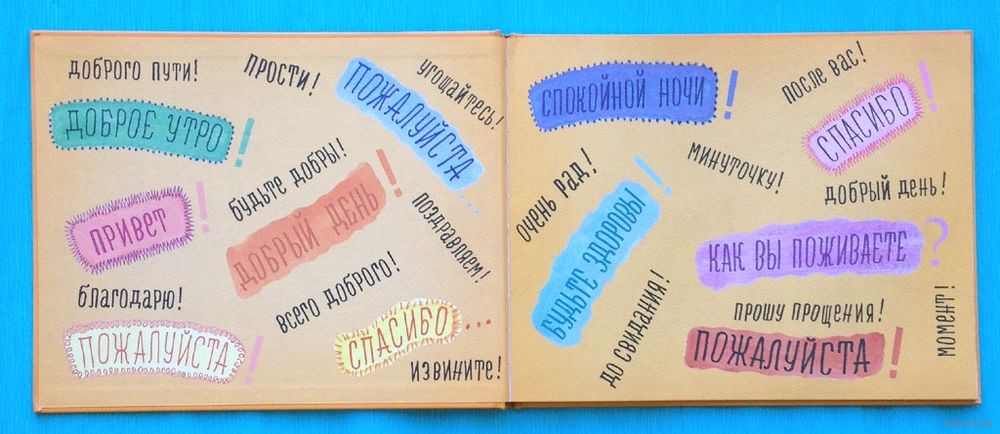 доброго пути!
прости!
угощайтесь!
ПОЖАЛУЙСТА...
ДОБРОЕ УТРО!
будьте добры!
ПРИВЕТ!
ДОБРЫЙ ДЕНЬ!
поздравляем!
благодарю!
всего доброго!
ПОЖАЛУЙСТА!
СПАСИБО...
извините!
СПОКОЙНОЙ НОЧИ!
после вас!
СПАСИБО!
очень рад!
минуточку!
добрый день!
БУДЬТЕ ЗДОРОВЫ!
КАК ВЫ ПОЖИВАЕТЕ?
до свидания!
прошу прощения!
ПОЖАЛУЙСТА!
момент!